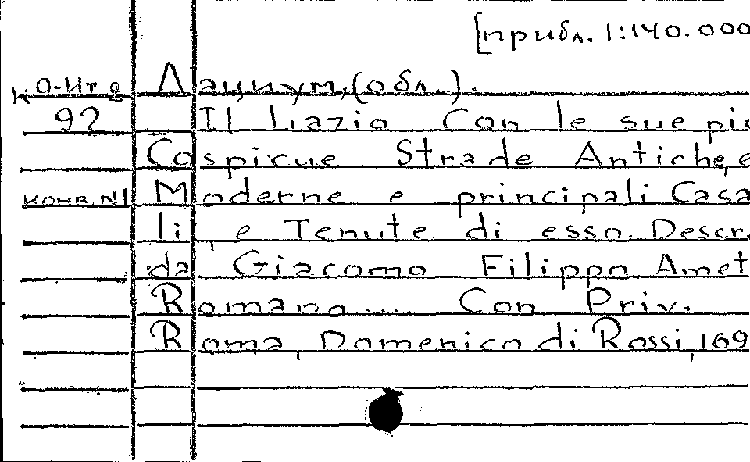 [прибл. 1:140.000
К О-Ит 2 Лациум, (обл.).
92 Il Lazio Con le sue più
Cospicue Strade Antiche, e
конв. N1 Moderne e principali Casa
li, e Tenute di esso. Descr
da Giacomo Filippo Amet
Romano... Con Priv.
Roma, Domenico di Rossi, 169